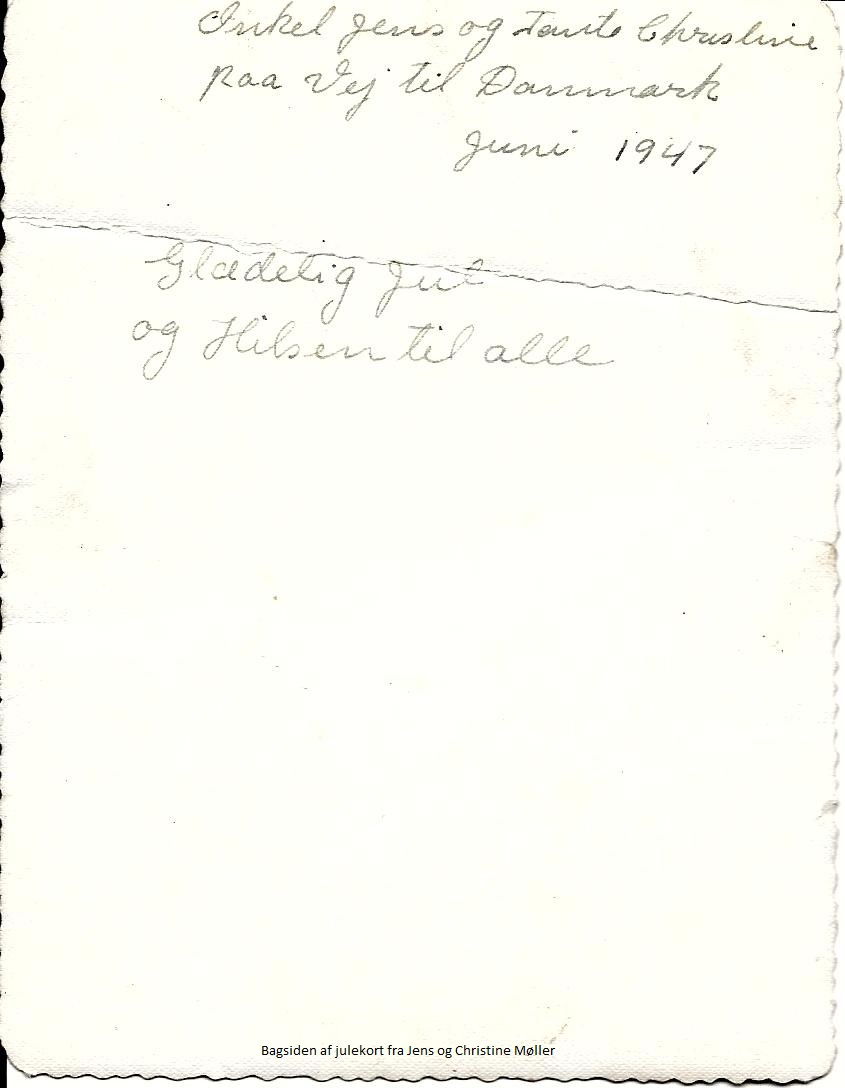 Onkel Jens og Tante Christine
paa Vej til Danmark
Juni 1947
Glædelig Jul
og Hilsen til alle
Bagsiden af julekort fra Jens og Christine Møller